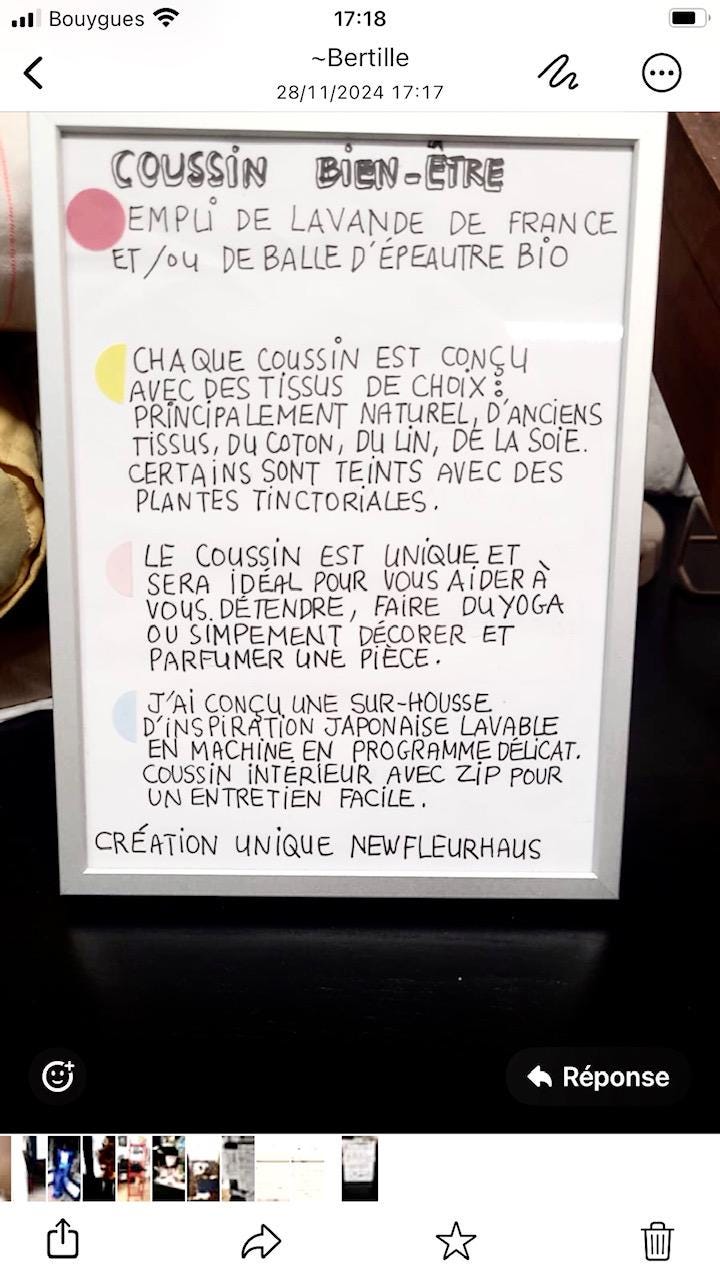 Bouygues
17:18
~Bertille
28/11/2024 17:17
COUSSIN BIEN-ÊTRE
EMPLI DE LAVANDE DE FRANCE
ET/OU DE BALLE D'ÉPEAUTRE BIO
CHAQUE COUSSIN EST CONÇU
AVEC DES TISSUS DE CHOIX :
PRINCIPALEMENT NATUREL, D'ANCIENS
TISSUS, DU COTON, DU LIN, DE LA SOIE.
CERTAINS SONT TEINTS AVEC DES
PLANTES TINCTORIALES.
LE COUSSIN EST UNIQUE ET
SERA IDÉAL POUR VOUS AIDER À
VOUS DÉTENDRE, FAIRE DU YOGA
OU SIMPEMENT DÉCORER ET
PARFUMER UNE PIÈCE.
J'AI CONÇU UNE SUR-HOUSSE
D'INSPIRATION JAPONAISE LAVABLE
EN MACHINE EN PROGRAMME DÉLICAT.
COUSSIN INTÉRIEUR AVEC ZIP POUR
UN ENTRETIEN FACILE.
CRÉATION UNIQUE NEWFLEURHAUS
Réponse